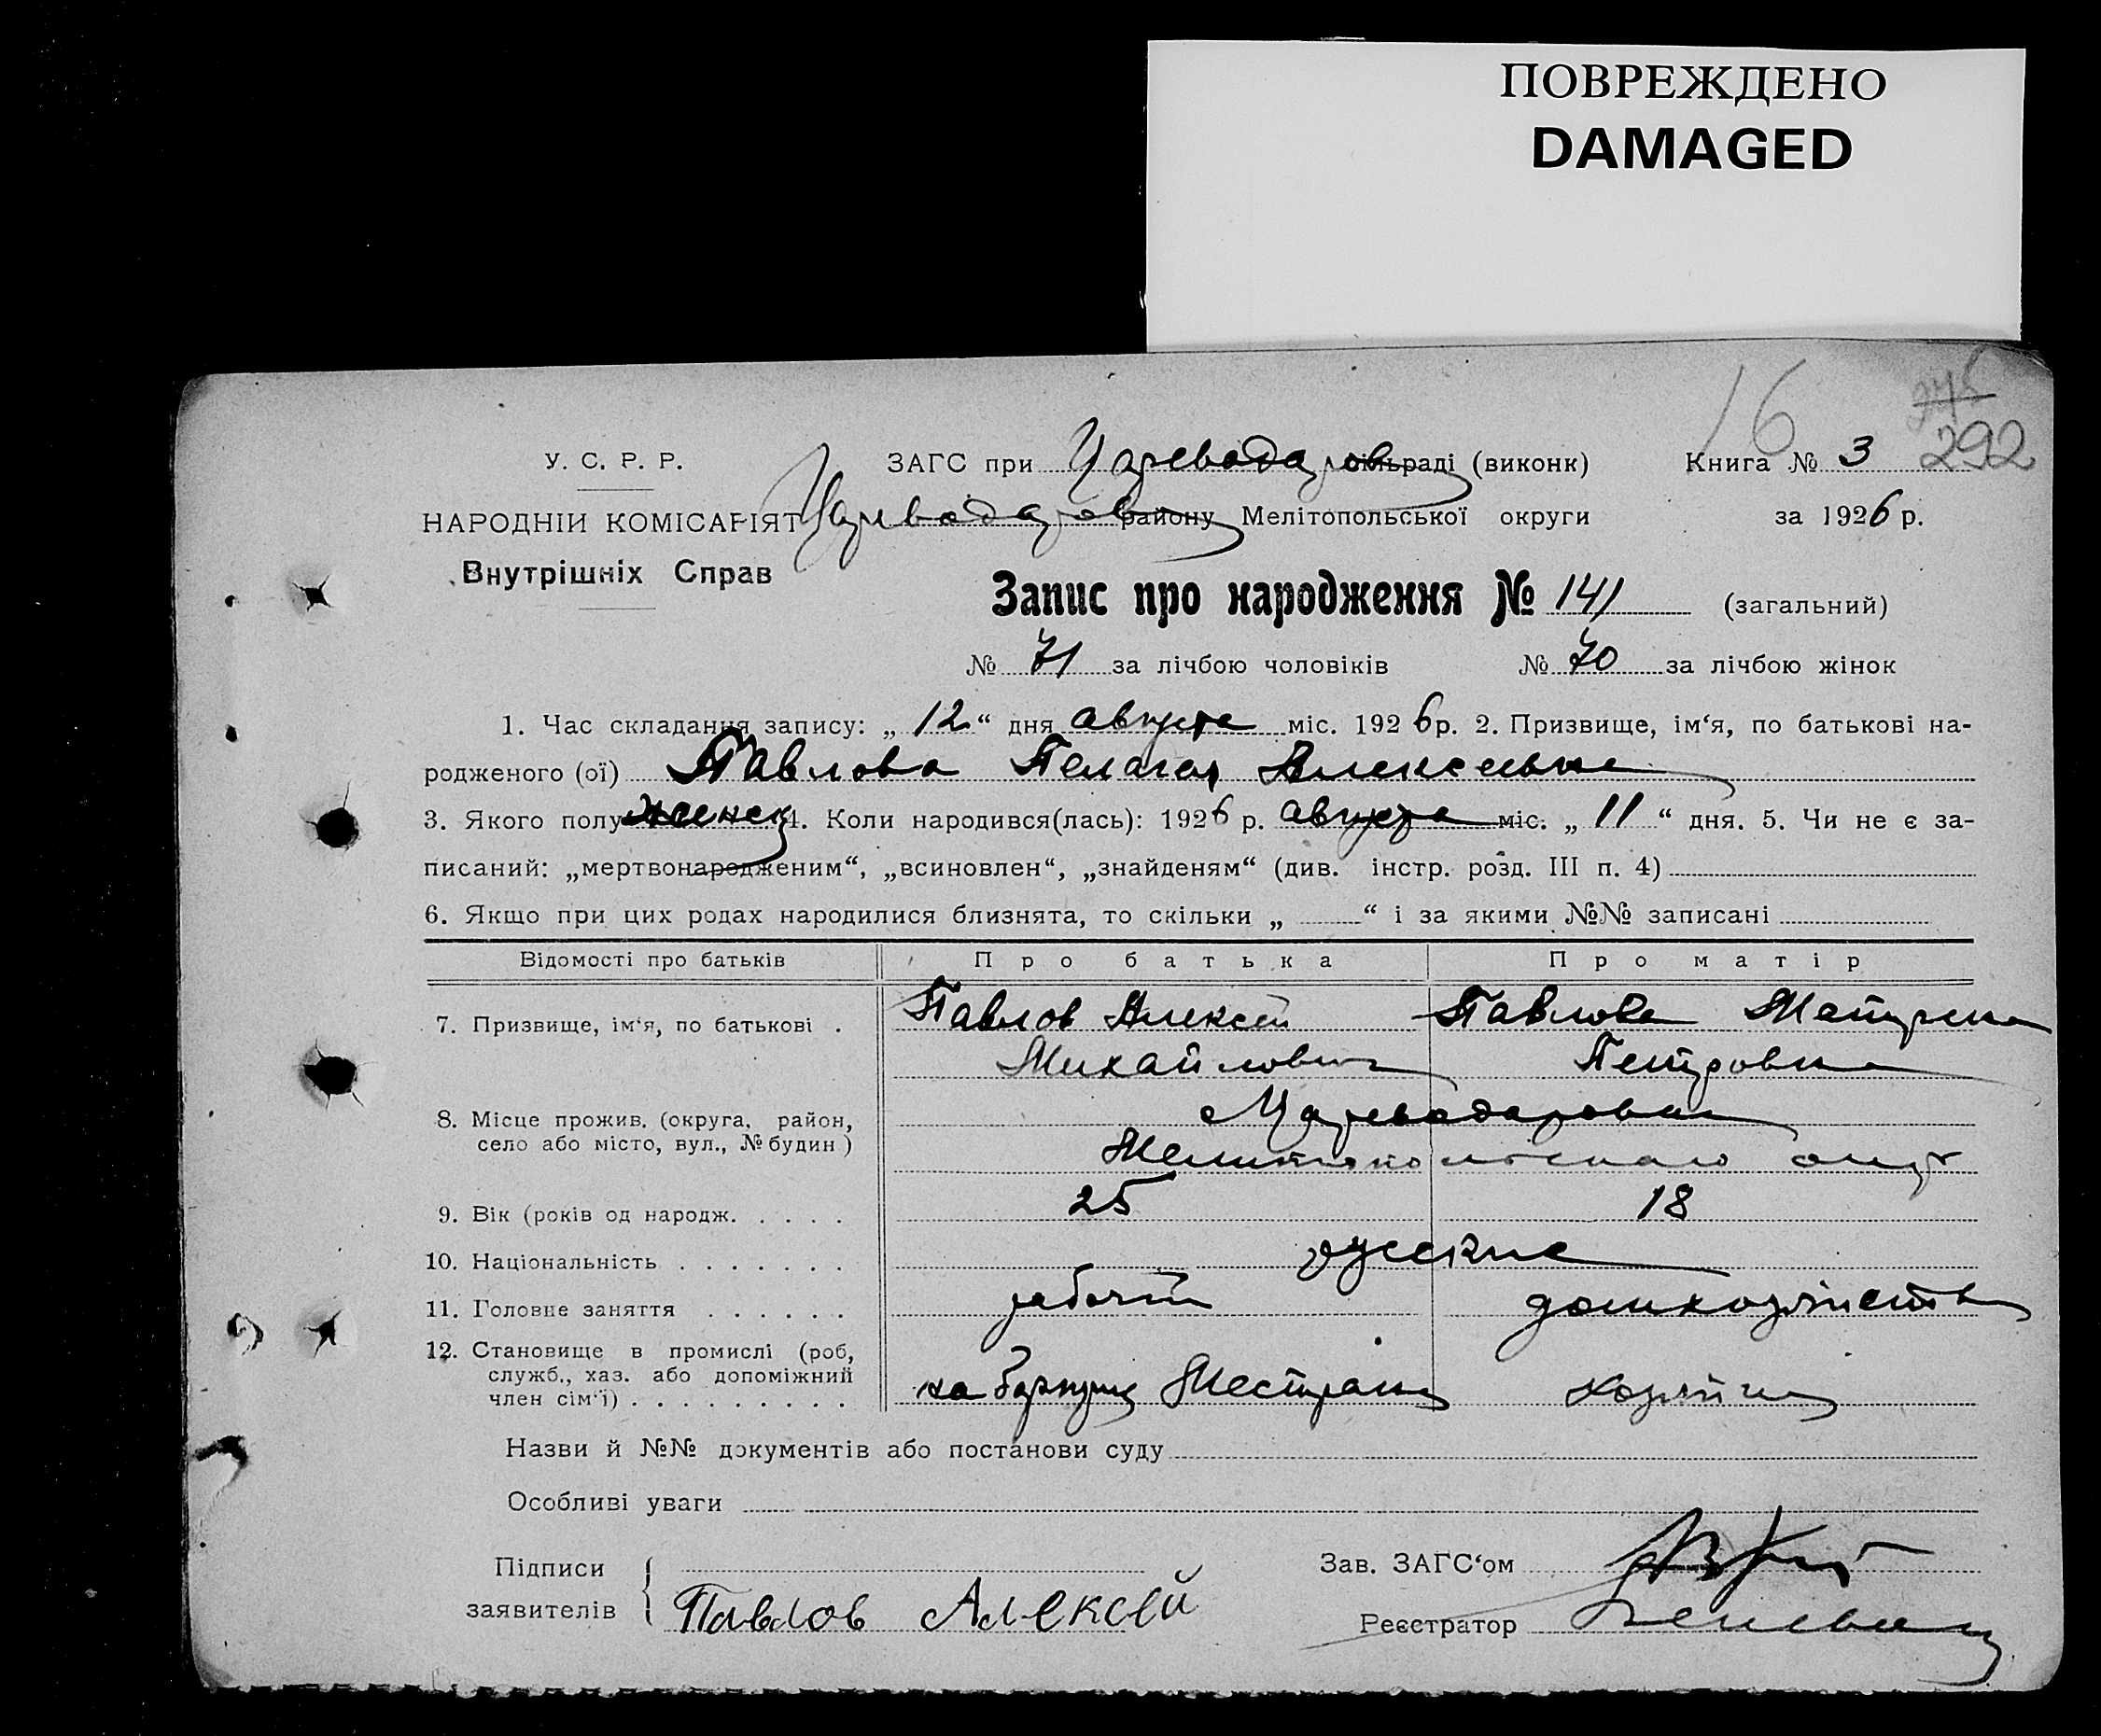 ПОВРЕЖДЕНО
DAMAGED
16 292
У. С. Р. Р. ЗАГС при Царевода сільраді (виконк) Книга № 3
НАРОДНІЙ КОМІСАРІЯТ району Мелітопольської округи за 1926 р.
Внутрішніх Справ
Запис про народження № 141 (загальний)
№ 71 за лічбою чоловіків № 70 за лічбою жінок
1. Час складання запису: „ 12 “ дня августа міс. 1926 р. 2. Призвище, ім‘я, по батькові на-
родженого (ої) Павлова Пелагея Алексеевна
3. Якого полу женск 4. Коли народився(лась): 1926 р. августа міс. „ 11 “ дня. 5. Чи не є за-
писаний: „мертвонародженим“, „всиновлен“, „знайденям“ (див. інстр. розд. III п. 4)
6. Якщо при цих родах народилися близнята, то скільки „ “ і за якими №№ записані
Відомості про батьків Про батька Про матір
7. Призвище, ім‘я, по батькові . Павлов Алексей Павлова Матрена
Михайлович Петровна
8. Місце прожив. (округа, район, Цареводаровка
село або місто, вул., № будин ) Мелитопольскаго окр
9. Вік (років од народж. . . . . 25 18
10. Національність . . . . . . . русские
11. Головне заняття . . . . . . рабочий домхозяйств
12. Становище в промислі (роб,
служб., хаз. або допоміжний
член сім‘ї) . . . . . . . . . на хозяйка
Назви й №№ документів або постанови суду
Особливі уваги
Підписи Зав. ЗАГС‘ом
заявителів Павлов Алексей Реєстратор